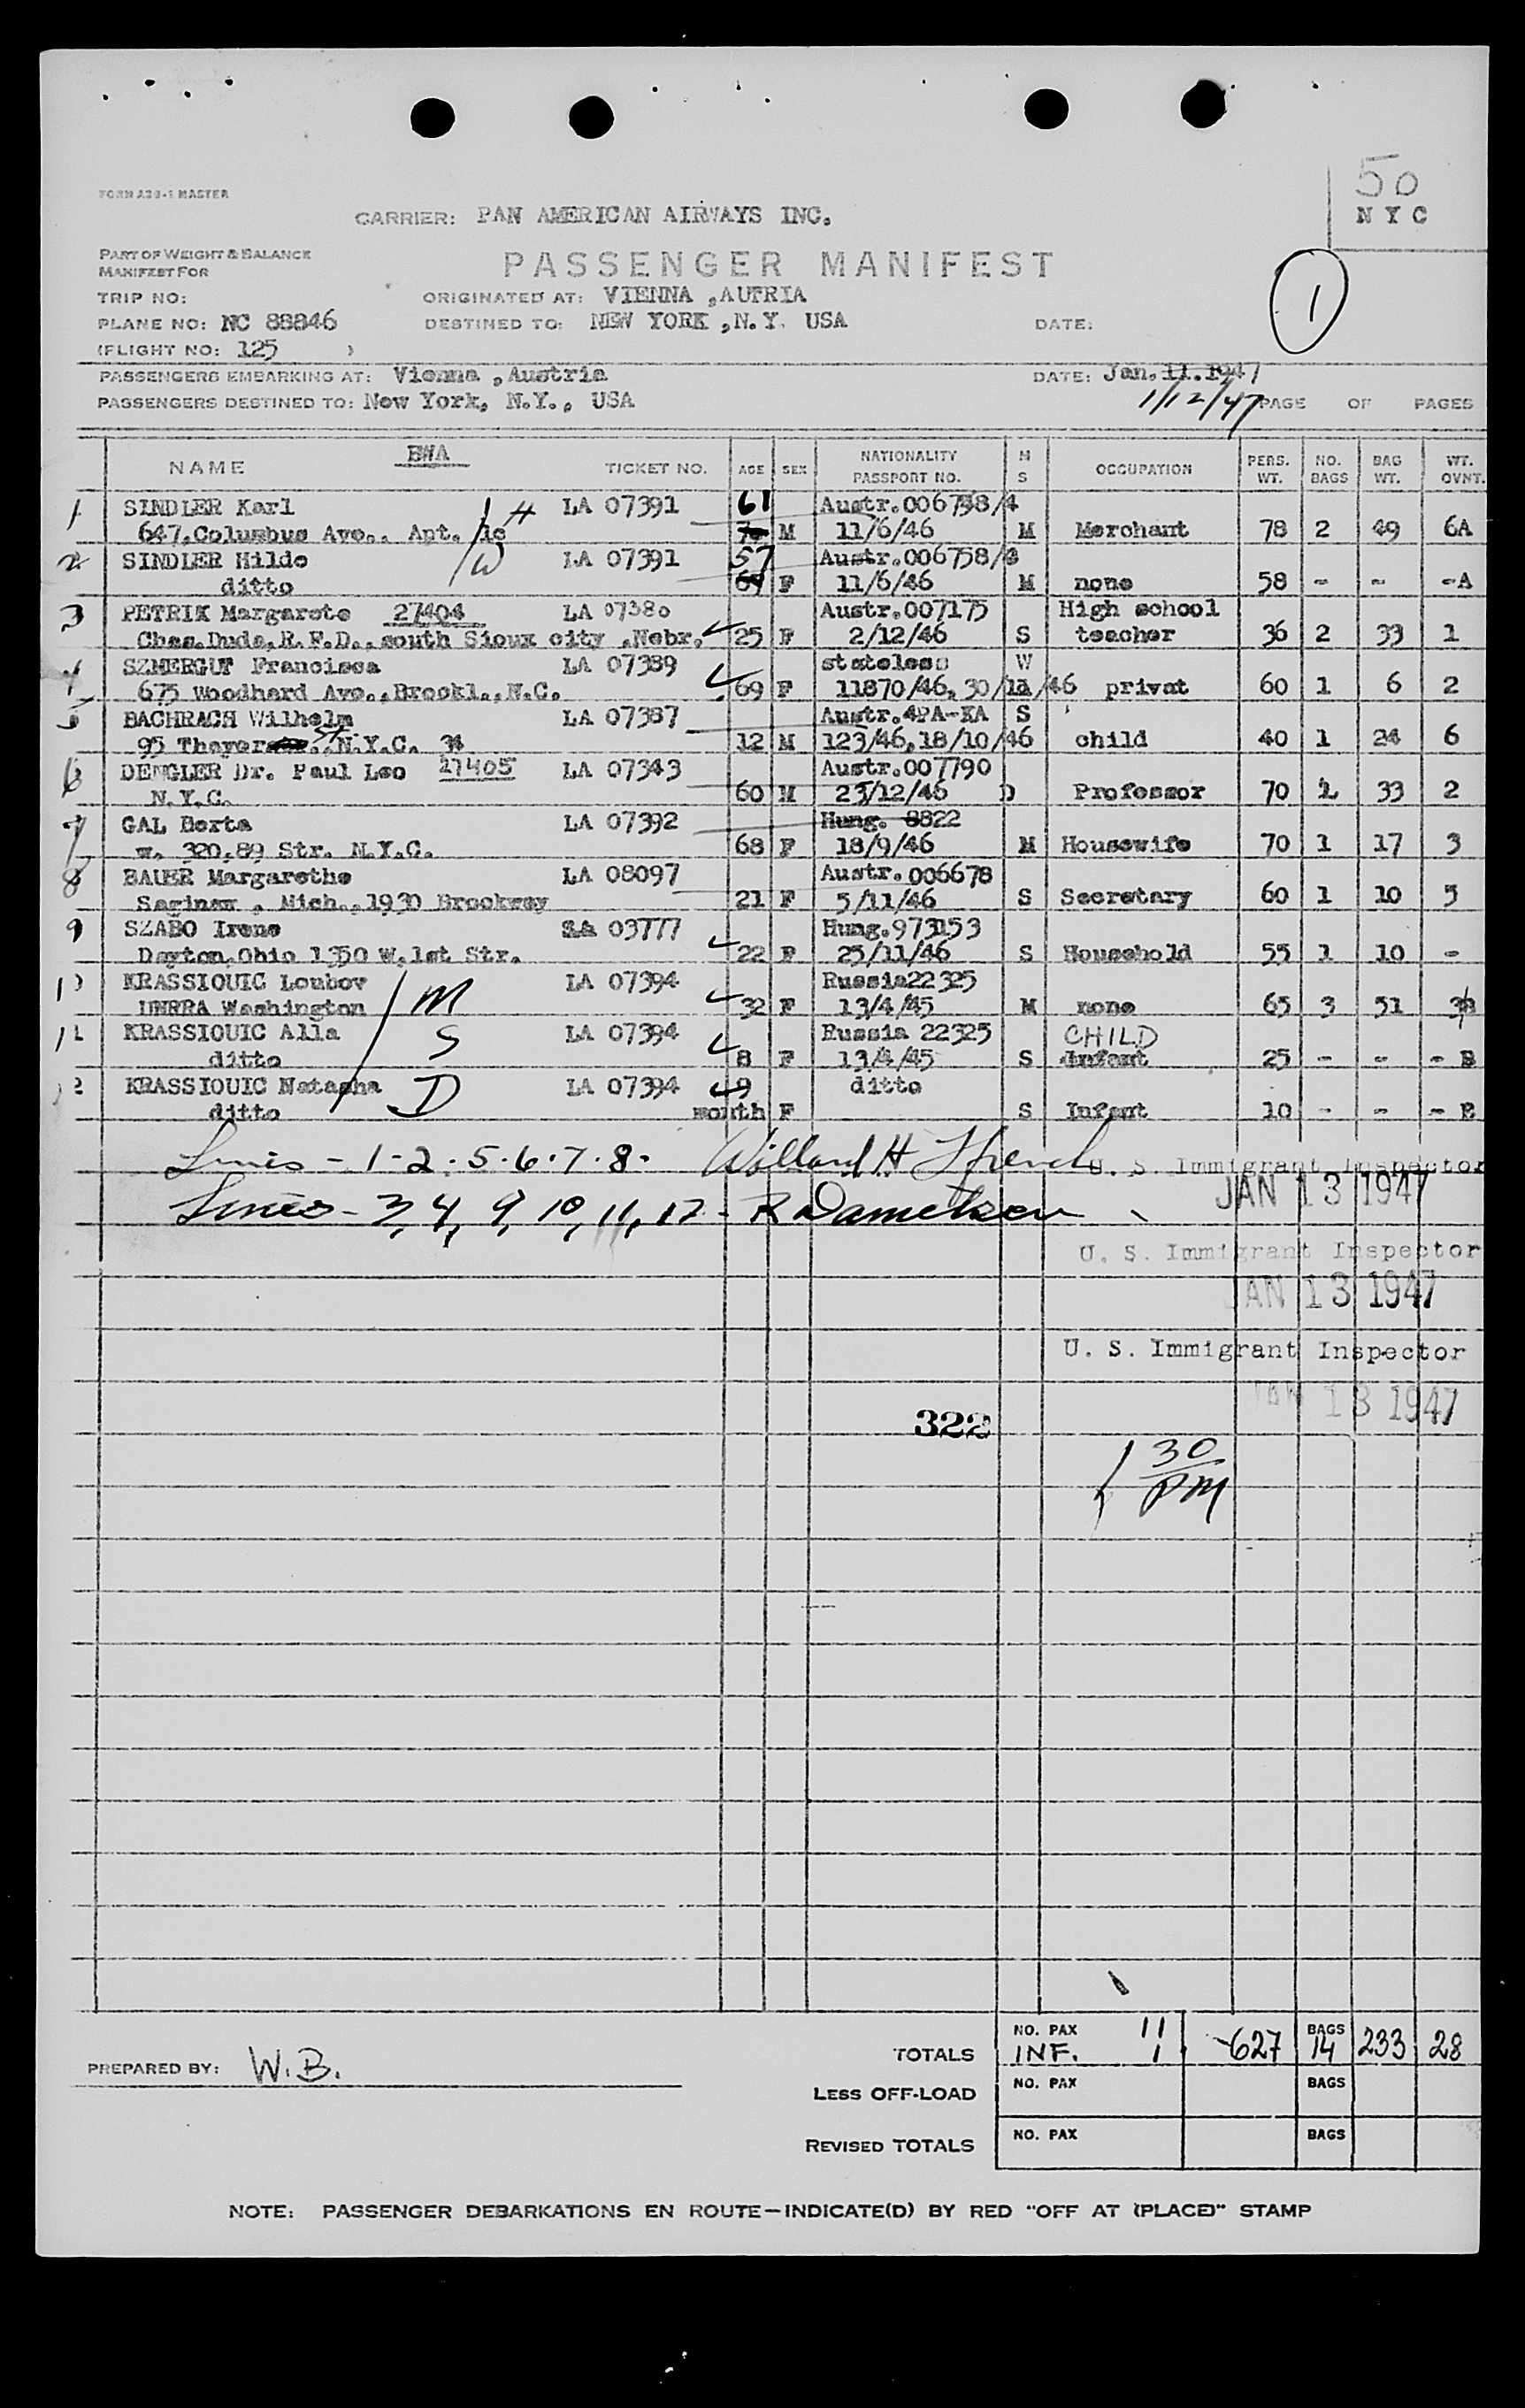 50
N Y C
FORM A20-1 MASTER
CARRIER: PAN AMERICAN AIRWAYS INC.
PART OF WEIGHT & BALANCE
MANIFEST FOR
PASSENGER MANIFEST
1
TRIP NO:
ORIGINATED AT: VIENNA ,AUTRIA
PLANE NO: NC 88846
DESTINED TO: NEW YORK ,N.Y. USA
DATE:
(FLIGHT NO: 125 )
PASSENGERS EMBARKING AT: Vienna ,Austria
DATE: Jan. 11. 1947
PASSENGERS DESTINED TO: New York, N.Y., USA
1/12/47 PAGE OF PAGES
NAME BWA TICKET NO. AGE SEX NATIONALITY PASSPORT NO. M S OCCUPATION PERS. WT. NO. BAGS BAG WT. WT. OVNT.
1 SINDLER Karl H LA 07391 61 Austr.006758/4
647,Columbus Ave., Apt. M 11/6/46 M Merchant 78 2 49 6A
2 SINDLER Hilde W LA 07391 57 Austr.006758/
ditto F 11/6/46 M none 58 - - -A
3 PETRIK Margarete 27404 LA 07380 Austr.007175 High school
Chas.Duda,R.F.D.,south Sioux city ,Nebr. 25 F 2/12/46 S teacher 36 2 33 1
4 SZMERGUT Francisca LA 07389 stateless W
675 Woodhard Ave.,Brookl.,N.C. 69 F 11870/46, 30/12/46 privat 60 1 6 2
5 BACHRACH Wilhelm LA 07387 Austr.4PA-KA S
95 Thayer St. N.Y.C. 34 12 M 123/46,18/10/46 child 40 1 24 6
6 DENGLER Dr. Paul Leo 27405 LA 07343 Austr.007790
N.Y.C. 60 M 23/12/46 D Professor 70 2 33 2
7 GAL Berta LA 07392 Hung. 8822
w. 320,89 Str. N.Y.C. 68 F 18/9/46 M Housewife 70 1 17 3
8 BAUER Margarethe LA 08097 Austr.006678
Saginaw , Mich.,1930 Brockway 21 F 5/11/46 S Secretary 60 1 10 5
9 SZABO Irene 03777 Hung.973153
Dayton,Ohio 1350 W.1st Str. 22 F 25/11/46 S Household 55 1 10 -
10 KRASSIOUIC Loubov M LA 07394 Russia22325
UNRRA Washington 32 F 13/4/45 M none 65 3 51 3
11 KRASSIOUIC Alla S LA 07394 Russia 22325 CHILD
ditto 8 F 13/4/45 S Infant 25 - - - B
12 KRASSIOUIC Natasha D LA 07394 9 ditto
ditto month F S Infant 10 - - - B
Lines - 1-2.5.6.7.8. Willard H French U. S. Immigrant Inspector
JAN 13 1947
Lines - 3, 4, 9, 10, 11, 12 - R
U. S. Immigrant Inspector
JAN 13 1947
U. S. Immigrant Inspector
JAN 13 1947
322
1 30 PM
TOTALS NO. PAX 11 INF. 1 627 BAGS 14 233 28
PREPARED BY: W.B.
LESS OFF-LOAD NO. PAX BAGS
REVISED TOTALS NO. PAX BAGS
NOTE: PASSENGER DEBARKATIONS EN ROUTE—INDICATE(D) BY RED "OFF AT (PLACE)" STAMP